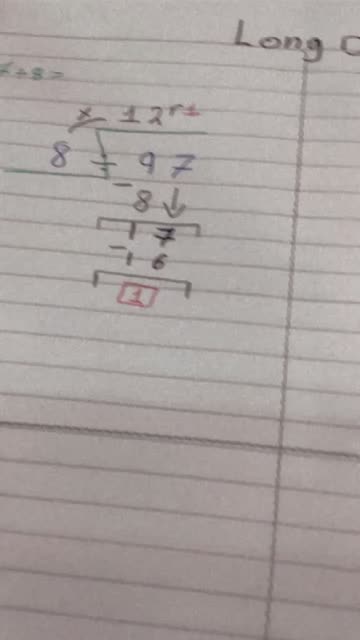 Long
× 12 r1
8 ÷ 97
- 8 ↓
1 7
- 1 6
1